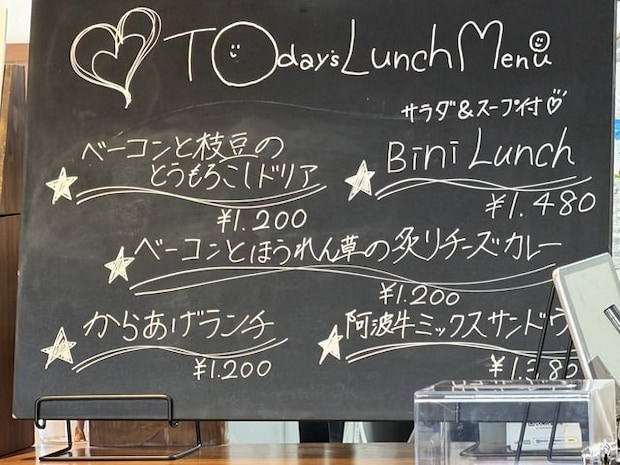 Today's Lunch Menu
サラダ&スープ付♡
ベーコンと枝豆の
とうもろこしドリア
¥1.200
Bini Lunch
¥1.480
ベーコンとほうれん草の炙りチーズカレー
¥1.200
からあげランチ
¥1.200
阿波牛ミックスサンドウ
¥1.380